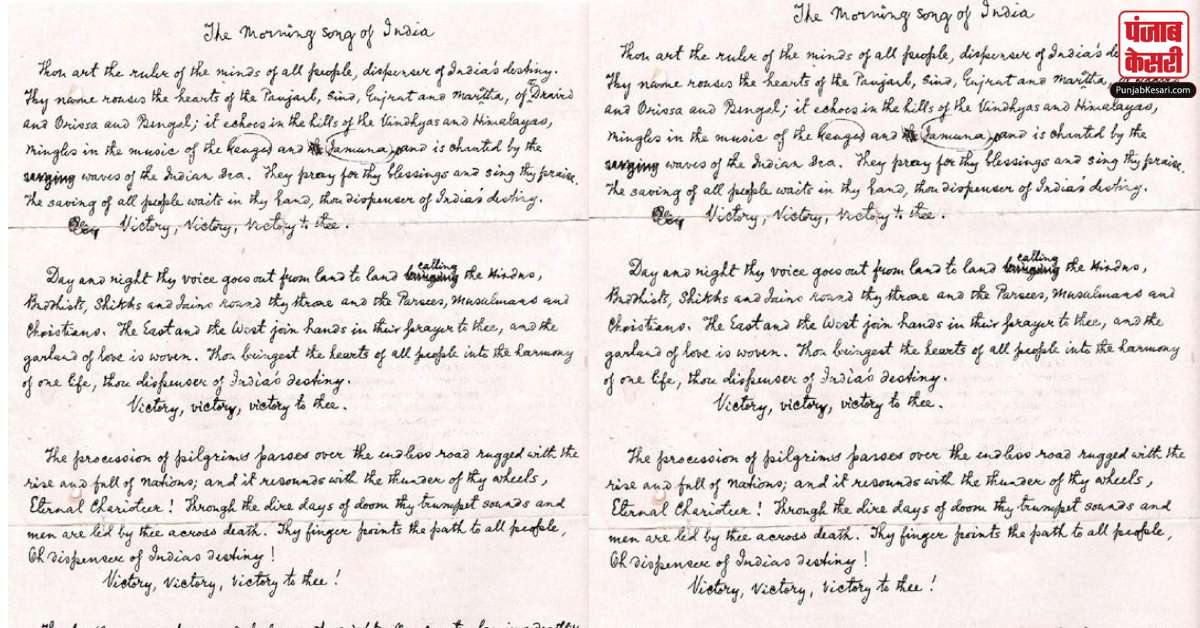 The Morning song of India
Thou art the ruler of the minds of all people, dispenser of India's destiny.
Thy name rouses the hearts of the Panjaub, Sind, Gujrat and Martha, of Dravid
and Orissa and Bengal; it echoes in the hills of the Vindhyas and Himalayas,
mingles in the music of the Ganges and Jamuna and is chanted by the
waves of the Indian Sea. They pray for thy blessings and sing thy praise.
The saving of all people waits in thy hand, thou dispenser of India's destiny.
Victory, Victory, Victory to thee.
Day and night thy voice goes out from land to land calling the Hindus,
Buddhists, Shikhs and Jains round thy throne and the Parsees, Musulmans and
Christians. The East and the West join hands in their prayer to thee, and the
garland of love is woven. Thou bringest the hearts of all people into the harmony
of one life, thou dispenser of India's destiny.
Victory, victory, victory to thee.
The procession of pilgrims passes over the endless road rugged with the
rise and fall of nations; and it resounds with the thunder of thy wheels,
Eternal Charioteer! Through the dire days of doom thy trumpet sounds and
men are led by thee across death. Thy finger points the path to all people,
Oh dispenser of Indias destiny!
Victory, Victory, Victory to thee!
The Morning song of India
Thou art the ruler of the minds of all people, dispenser of India's
Thy name rouses the hearts of the Panjaub, Sind, Gujrat and Martha,
and Orissa and Bengal; it echoes in the hills of the Vindhyas and Himalayas,
mingles in the music of the Ganges and Jamuna and is chanted by the
waves of the Indian Sea. They pray for thy blessings and sing thy praise.
The saving of all people waits in thy hand, thou dispenser of India's destiny.
Victory, Victory, Victory to thee.
Day and night thy voice goes out from land to land calling the Hindus,
Buddhists, Shikhs and Jains round thy throne and the Parsees, Musulmans and
Christians. The East and the West join hands in their prayer to thee, and the
garland of love is woven. Thou bringest the hearts of all people into the harmony
of one life, thou dispenser of India's destiny.
Victory, victory, victory to thee.
The procession of pilgrims passes over the endless road rugged with the
rise and fall of nations; and it resounds with the thunder of thy wheels,
Eternal Charioteer! Through the dire days of doom thy trumpet sounds and
men are led by thee across death. Thy finger points the path to all people,
Oh dispenser of Indias destiny!
Victory, Victory, Victory to thee!
पंजाब
केसरी
PunjabKesari.com